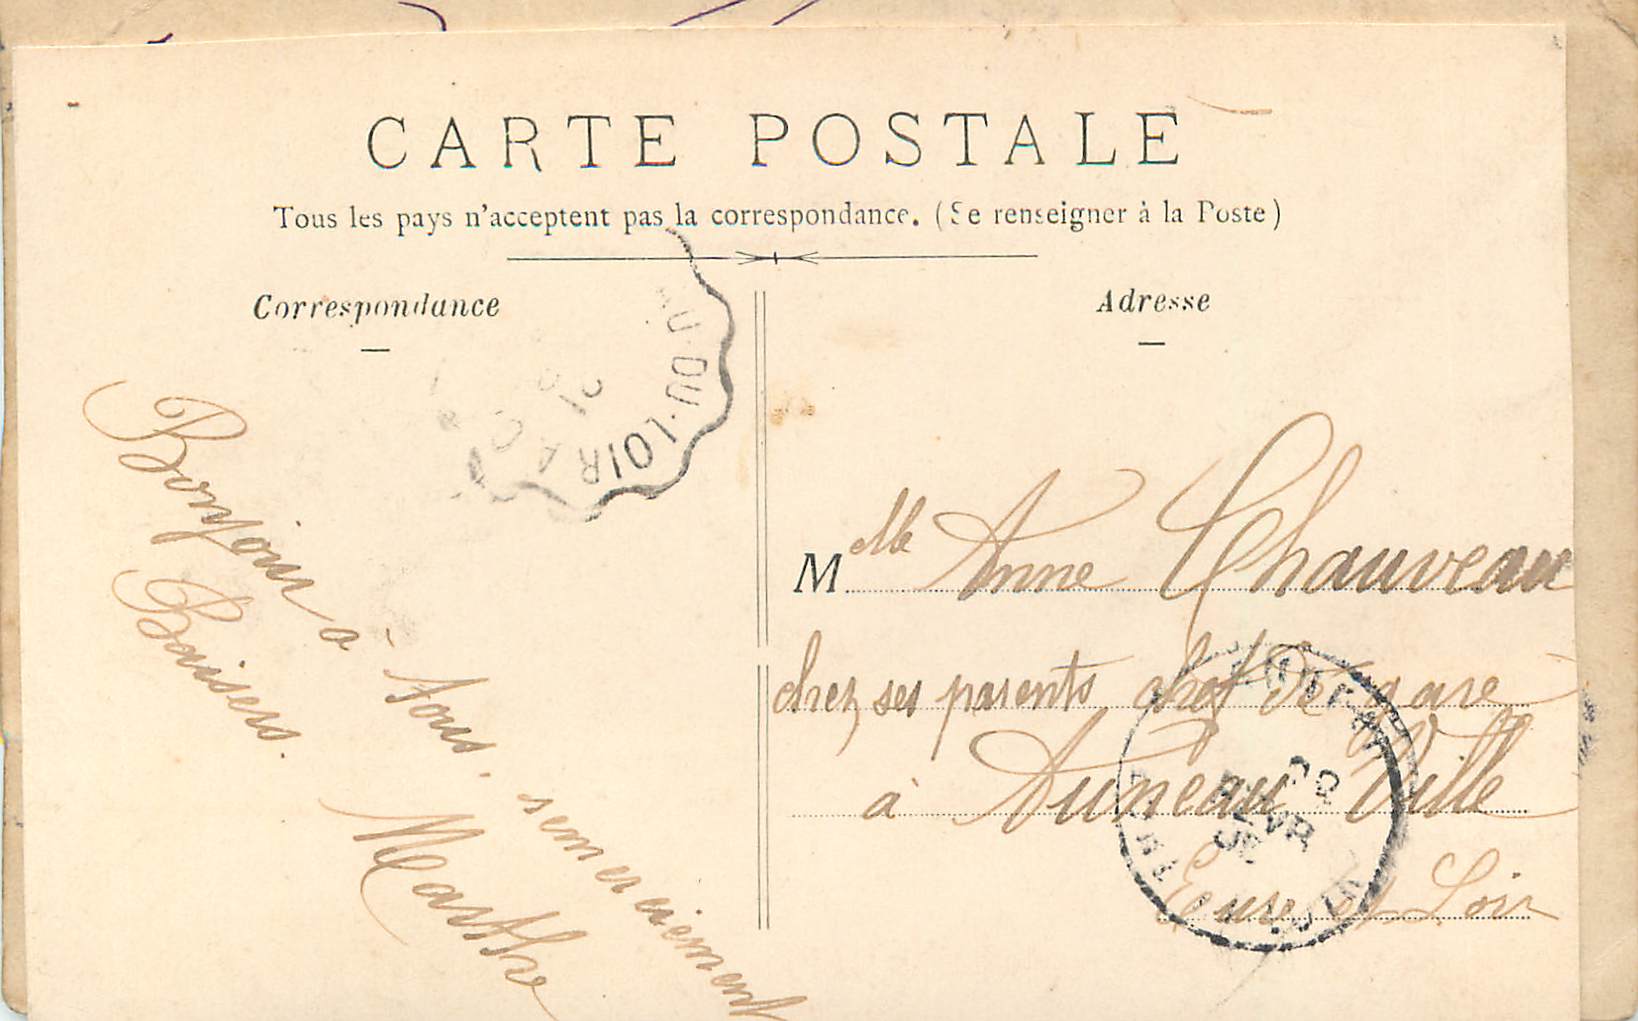 CARTE POSTALE
Tous les pays n'acceptent pas la correspondance. (Se renseigner à la Poste)
Correspondance
Adresse
DU·LOIR A C
Bonjour à tous, remerciement
Baisers.
Marthe
Melle Anne Chauveau
chez ses parents chef de gare
à Auneau Ville
Eure et Loir